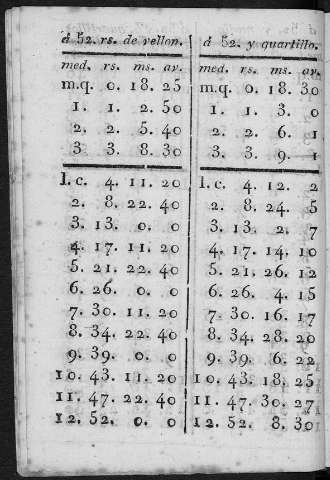 á 52. rs. de vellon.
med. rs. ms. av.
m.q. 0. 18. 25
1. 1. 2. 50
2. 2. 5. 40
3 3. 8. 30
1. c. 4. 11. 20
2. 8. 22. 40
3. 13. 0. 0
4. 17. 11. 20
5. 21. 22. 40
6. 26. 0. 0
7. 30. 11. 20
8. 34. 22. 40
9. 39. 0. 0
10. 43. 11. 20
11. 47. 22. 40
12. 52. 0. 0
á 52. y quartillo.
med. rs. ms. av.
m.q. 0. 18. 30
1. 1. 3. 0
2. 2. 6. 1
3. 3. 9. 1
1. c. 4. 12. 2
2. 8. 24. 5
3. 13. 2. 7
4. 17. 14. 10
5. 21. 26. 12
6. 26. 4. 15
7. 30. 16. 17
8. 34. 28. 20
9. 39. 6. 22
10. 43. 18. 25
11. 47. 30. 27
12. 52. 8. 30